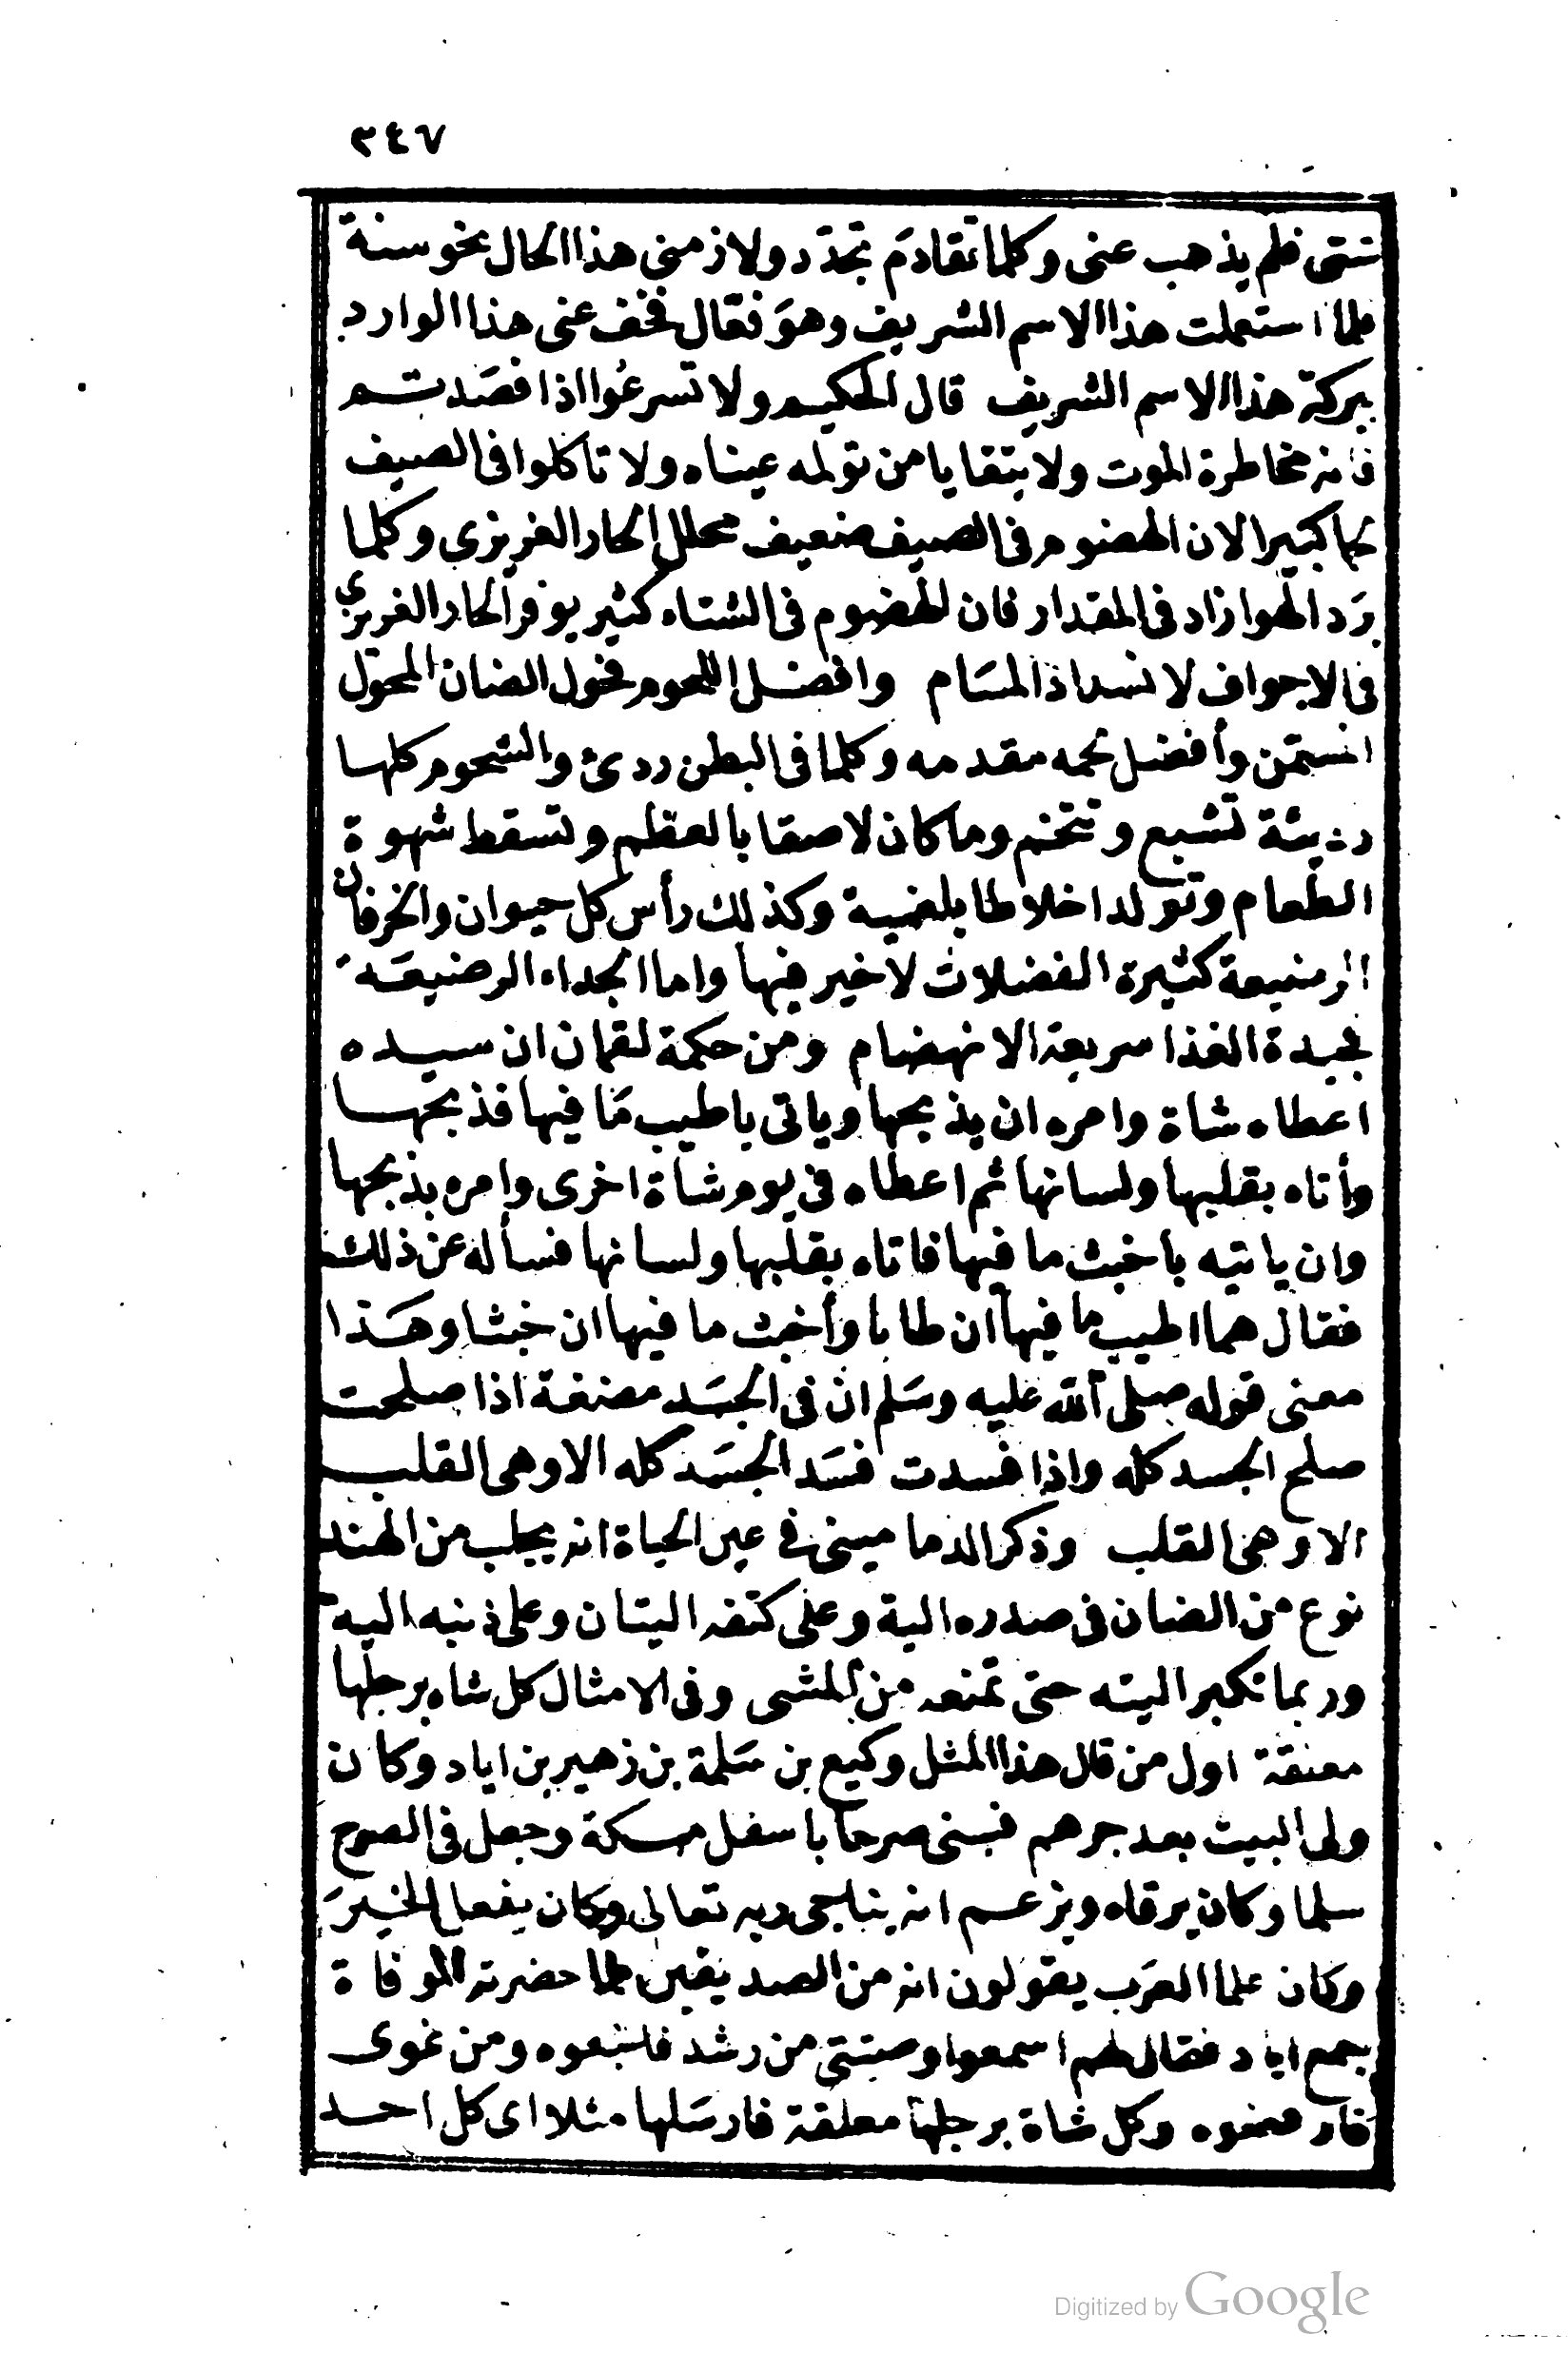 ٣٤٧
تنتهى فلم يذهب عنى وكلما تقادم تجدد ولازمنى هذا الحال نحو سنة
فلما استعملت هذا الاسم الشريف وهو فعال خفف عنى هذا الوارد
ببركة هذا الاسم الشريف قال الحكيم ولا تسرعوا اذا فصدتم
فانه مخاطرة الموت ولا يتقايا من تولمه عيناه ولا تاكلوا فى الصيف
لحما كثيرا لان الهضوم فى الصيف ضعيف محلل الحار الغريزى وكلما
برد الهوا زاد فى المقدار فان الهضوم فى الشتاء كثير بوفر الحار الغريزى
فى الاجواف لانسداد المسام وافضل اللحوم فحول الضان المحول
المسمن وأفضل لحمه مقدمه وكلما فى البطن ردئ والشحوم كلها
رديئة تشبع وتتخم وما كان لاصقا بالعظم وتسقط شهوة
الطعام وتولد اخلاطا بلغمية وكذلك رأس كل حيوان والخرفان
الرضيعة كثيرة الفضلات لا خير فيها واما الجداء الرضيعة
فجيدة الغذا سريعة الانهضام ومن حكمة لقمان ان سيده
اعطاه شاة وامره ان يذبحها وياتى باطيب ما فيها فذبحها
وأتاه بقلبها ولسانها ثم اعطاه فى يوم شاة اخرى وامره بذبحها
وان ياتيه باخبث ما فيها فاتاه بقلبها ولسانها فسأله عن ذلك
فقال هما اطيب ما فيها ان طابا وأخبث ما فيها ان خبثا وهذا
معنى قوله صلى الله عليه وسلم ان فى الجسد مضغة اذا صلحت
صلح الجسد كله واذا فسدت فسد الجسد كله الا وهى القلب
الا وهى القلب وذكر الدماميني فى عين الحياة انه يجلب من الهند
نوع من الضان فى صدره الية وعلى كتفه اليتان وعلى ذنبه الية
وربما تكبر اليته حتى تمنعه من المشى وفى الامثال كل شاه برجلها
معلقة اول من قال هذا المثل وكيع بن سلمة بن زهير بن اياد وكان
ولى البيت بعد جرهم فبنى صرحا باسفل مكة وجعل فى الصرح
سلما وكان يرقاه ويزعم انه يناجى ربه تعالى وكان يفعل الخير
وكان علما العرب يقولون انه من الصديقين فلما حضرته الوفاة
جمع اياد فقال لهم اسمعوا وصيتى من رشد فاتبعوه ومن غوى
فارفضوه وكل شاة برجلها معلقة فارسلها مثلا اى كل احد
Digitized by Google